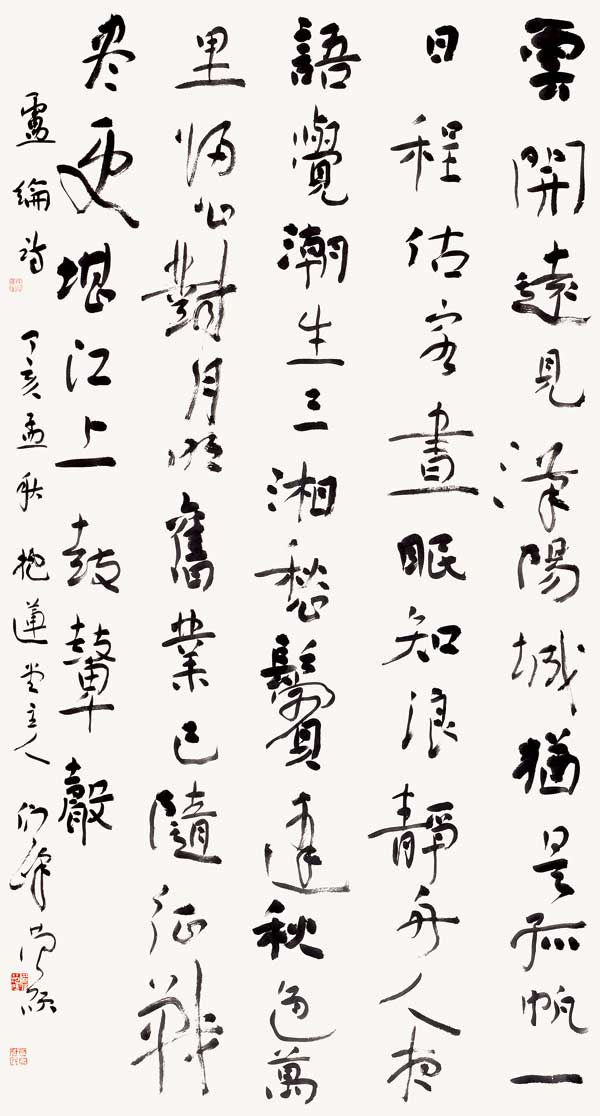 雲開遠見漢陽城猶是孤帆一
日程估客晝眠知浪靜舟人夜
語覺潮生三湘愁鬢逢秋色萬
里歸心對月明舊業已隨征戰
盡更堪江上鼓鼙聲
盧綸詩 丁亥孟秋 抱蓮堂主人